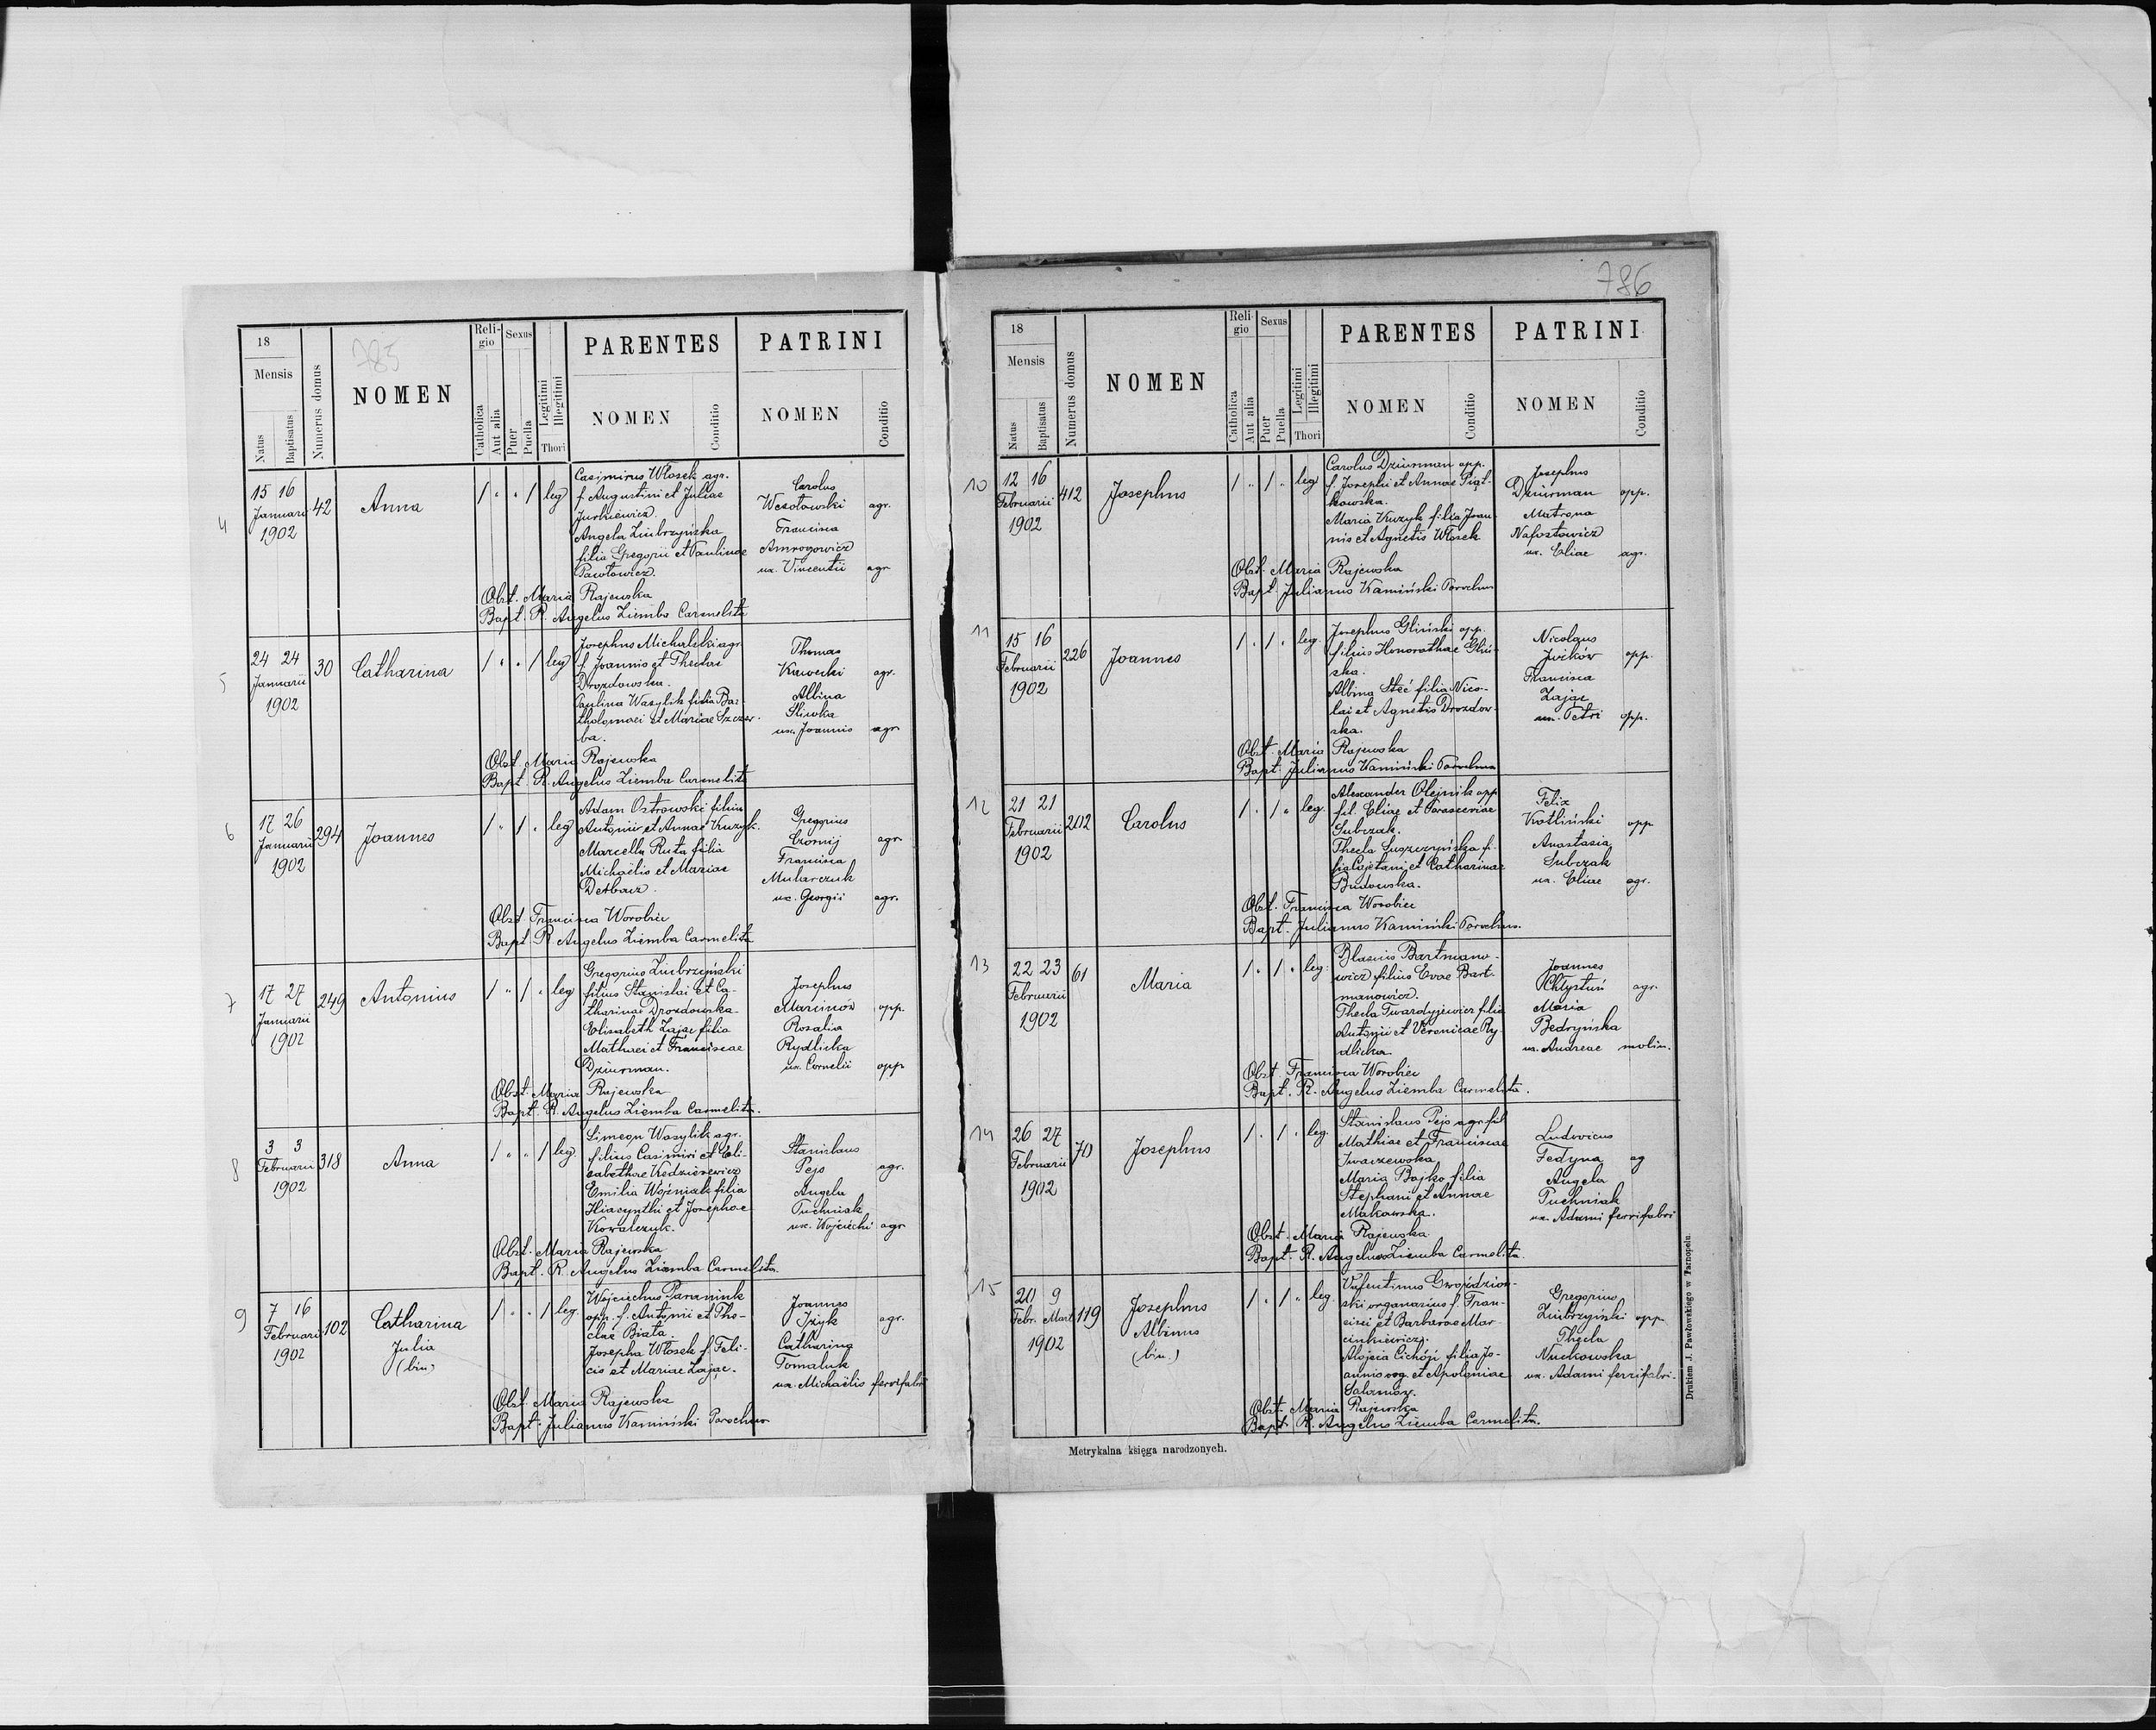 785
18
Mensis
Natus
Baptisatus
Numerus domus
NOMEN
Reli-
gio
Catholica
Aut alia
Sexus
Puer
Puella
Legitimi
Illegitimi
Thori
PARENTES
NOMEN
Conditio
PATRINI
NOMEN
Conditio
4
15 16
Januarii
1902
42
Anna
leg
Casimirus Włosek agr.
f. Augustini et Juliae
Jurkiewicz.
Angela Zimbrzyńska
filia Gregorii et Paulinae
Pawłowicz.
Carolus
Wesołowski agr.
Francisca
Amrogowicz
ux. Vincentii agr
Obst. Maria Rajewska
Bapt. R. Angelus Ziemba Carmelita
5
24 24
Januarii
1902
30
Catharina
leg
Josephus Michalski agr
f. Joannis et Theclae
Drozdowska.
Paulina Wasylik filia Bar-
tholomaei et Mariae Szczer-
ba.
Thomas
Kawecki agr.
Albina
Śliwka
ux. Joannis agr.
Obst. Maria Rajewska
Bapt. R. Angelus Ziemba Carmelita
6
17 26
Januarii
1902
294
Joannes
leg
Adam Ostrowski filius
Antonii et Annae Kruzyk.
Marcella Ruta filia
Michaëlis et Mariae
Gregorius
Czornij agr.
Francisca
Mularczuk
ux. Georgii agr.
Obst Francisca Worobiec
Bapt R. Angelus Ziemba Carmelita
7
17 27
Januarii
1902
249
Antonius
leg
Gregorius Zimbrzyński
filius Stanislai et Ca-
tharinae Drozdowska-
Elisabeth Zając filia
Mathaei et Franciscae
Dziurman.
Josephus
Marcinów opp.
Rosalia
Rydlicka
ux. Cornelii opp
Obst. Maria Rajewska
Bapt. R. Angelus Ziemba Carmelita.
8
3 3
Februarii
1902
318
Anna
leg.
Simeon Wasylik agr.
filius Casimiri et Eli-
sabethae Kędzierewicz
Emilia Woźniak filia
Hiacynthi et Josephae
Kowalczuk.
Stanislaus
Pejo agr.
Angela
Puchniak
ux. Wojciechi agr
Obst. Maria Rajewska
Bapt. R. Angelus Ziemba Carmelita.
9
7 16
Februarii
1902
102
Catharina
Julia
(bin.)
leg.
Wojciechus Paraniuk
opp. f. Antonii et The-
clae Biała.
Josepha Włosek f. Feli-
cis et Mariae Zając.
Joannes
Izyk agr.
Catharina
Tomaluk
ux. Michaëlis ferrifabri
Obst. Maria Rajewska
Bapt. Julianus Kamiński Parochus
786
18
Mensis
Natus
Baptisatus
Numerus domus
NOMEN
Reli-
gio
Catholica
Aut alia
Sexus
Puer
Puella
Legitimi
Illegitimi
Thori
PARENTES
NOMEN
Conditio
PATRINI
NOMEN
Conditio
10
12 16
Februarii
1902
412
Josephus
leg
Carolus Dziurman opp.
f. Josephi et Annae Piąt-
kowska.
Maria Kruzyk filia Joan-
nis et Agnetis Włosek
Josephus
Dziurman opp.
Matrona
Nafostowicz
ux. Eliae agr.
Obst. Maria Rajewska
Bapt. Julianus Kamiński Parochus
11
15 16
Februarii
1902
226
Joannes
leg.
Josephus Gliński opp.
filius Honorathae Gliń-
ska.
Albina Steć filia Nico-
lai et Agnetis Drozdow-
ska.
Nicolaus
Jwików opp.
Francisca
Zając
ux. Petri opp.
Obst. Maria Rajewska
Bapt. Julianus Kamiński Parochus
12
21 21
Februarii
1902
202
Carolus
leg.
Alexander Olejnik opp
fil. Eliae et Parasceviae
Subczak.
Thecla Suszczyńska fi-
lia Cajetani et Catharinae
Budowska.
Felix
Kotliński opp
Anastasia
Subczak
ux. Eliae agr.
Obst. Francisca Worobiec
Bapt. Julianus Kamiński Parochus.
13
22 23
Februarii
1902
61
Maria
leg.
Blasius Bartmano-
wicz filius Evae Bart-
manowicz.
Thecla Twardyjewicz filia
Antonii et Veronicae Ry-
dlicka.
Joannes
Chłystuń agr.
Maria
Bedryńska
ux. Andreae molin.
Obst Francisca Worobiec
Bapt. R. Angelus Ziemba Carmelita.
14
26 27
Februarii
1902
70
Josephus
leg.
Stanislaus Pejo agr. fil
Mathiae et Franciscae
Iwaszewska
Maria Bojko filia
Stephani et Annae
Makowska.
Ludovicus
Fedyna ag
Angela
Puchniak
ux. Adami ferrifabri
Obst. Maria Rajewska
Bapt. R. Angelus Ziemba Carmelita.
15
20 9
Febr. Mart
1902
119
Josephus
Albinus
(bin.)
leg.
Valentinus Gwoździow-
ski organarius f. Fran-
cisci et Barbarae Mar-
cinkiewicz.
Alojsia Cichój filia Jo-
annis org. et Apoloniae
Salamon.
Gregorius
Zimbrzyński opp
Thecla
Nuckowska
ux. Adami ferrifabri.
Obst. Maria Rajewska
Bapt. R. Angelus Ziemba Carmelita.
Metrykalna księga narodzonych.
Drukiem J. Pawłowskiego w Tarnopolu.